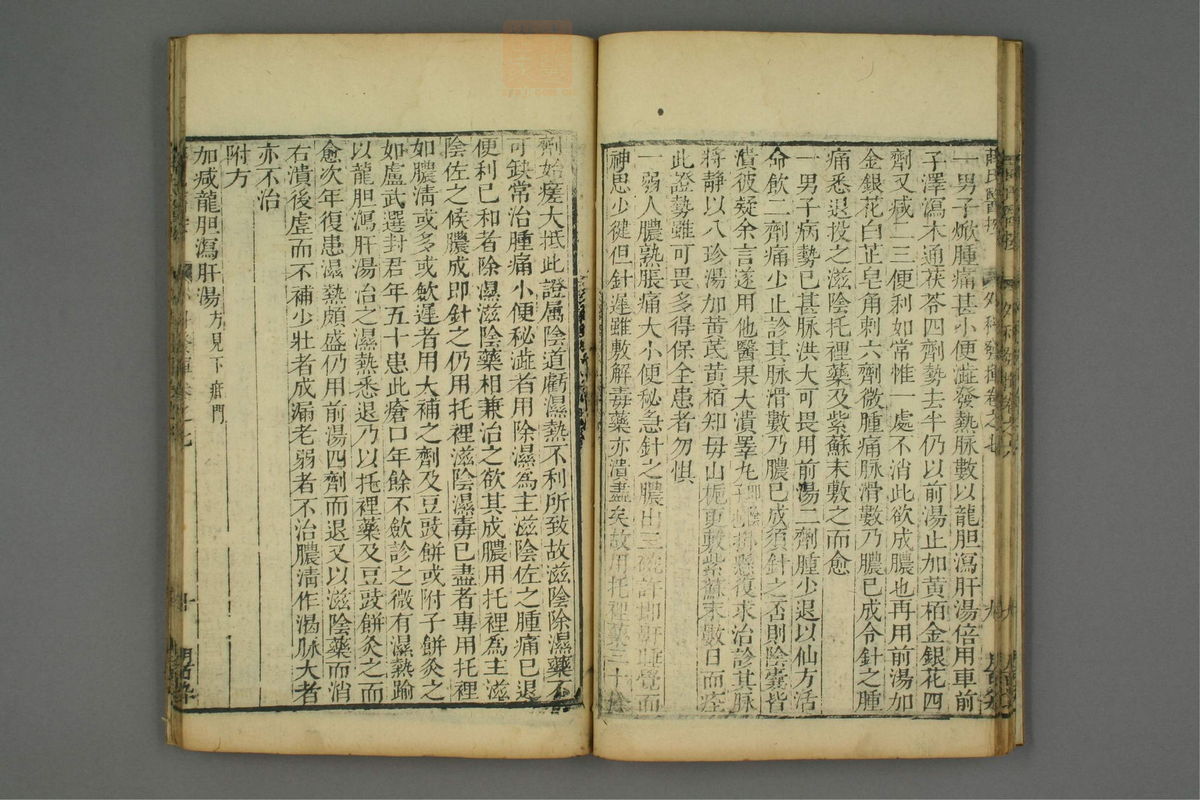 一男子掀腫痛甚小便澁發熱脉數以龍胆瀉肝湯倍用車前
子澤瀉木通茯苓四劑勢去半仍以前湯止加黄栢金銀花四
劑又痊二三便利如常惟一處不消此欲成膿也再用前湯加
金銀花白芷皂角刺六劑微腫痛脉滑數乃膿已成令針之腫
痛悉退投之滋陰托裡藥及紫蘇末敷之而愈
一男子病勢已甚脉洪大可畏用前湯二劑腫少退以仙方活
命飲二劑痛少止診其脉滑數乃膿已成須針之否則陰囊皆
潰彼疑余言遂用他醫果大潰睪丸掛懸復求治診其脉
將静以八珍湯加黄芪黄栢知母山梔更敷紫蘇末數日而痊
此證勢雖可畏多得保全患者勿惧
一弱人膿熟脹痛大小便秘急針之膿出三碗許即鼾睡覺而
神思少健但針遲雖敷解毒藥亦潰盡矣故用托裡藥三十餘
劑始瘥大抵此證属陰道虧濕熱不利所致故滋陰除濕藥不
可缺常治腫痛小便秘澁者用除濕爲主滋陰佐之腫痛已退
便利已和者除濕滋陰藥相兼治之欲其成膿用托裡為主滋
陰佐之候膿成即針之仍用托裡滋陰濕毒已盡者專用托裡
如膿清或多或歛遲者用大補之劑及豆豉餅或附子餅灸之
如盧武選封君年五十患此瘡口年餘不歛診之微有濕熱
以龍胆瀉肝湯治之濕熱悉退乃以托裡藥及豆豉餅灸之而
愈次年復患濕熱頗盛仍用前湯四劑而退又以滋陰藥而消
右潰後虚而不補少壯者成漏老弱者不治膿清作渴脉大者
亦不治
附方
加减龍胆瀉肝湯方見下疳門